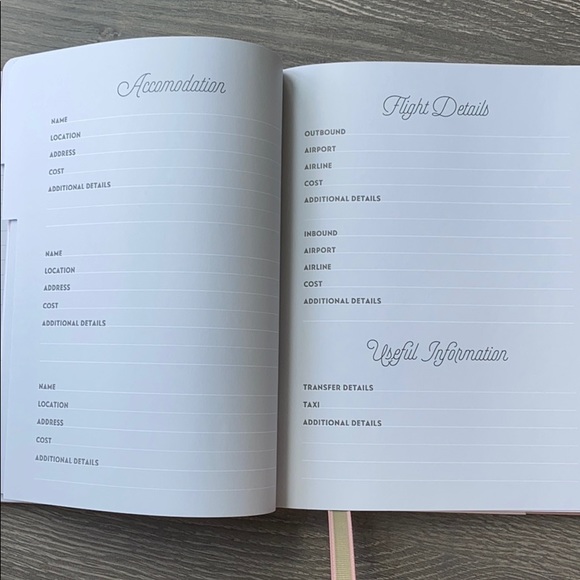 Accomodation
NAME
LOCATION
ADDRESS
COST
ADDITIONAL DETAILS
NAME
LOCATION
ADDRESS
COST
ADDITIONAL DETAILS
NAME
LOCATION
ADDRESS
COST
ADDITIONAL DETAILS
Flight Details
OUTBOUND
AIRPORT
AIRLINE
COST
ADDITIONAL DETAILS
INBOUND
AIRPORT
AIRLINE
COST
ADDITIONAL DETAILS
Useful Information
TRANSFER DETAILS
TAXI
ADDITIONAL DETAILS